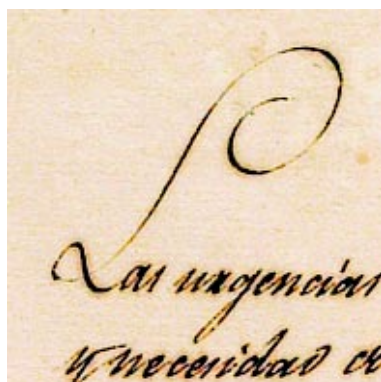 Las urgencias
y necesidad de